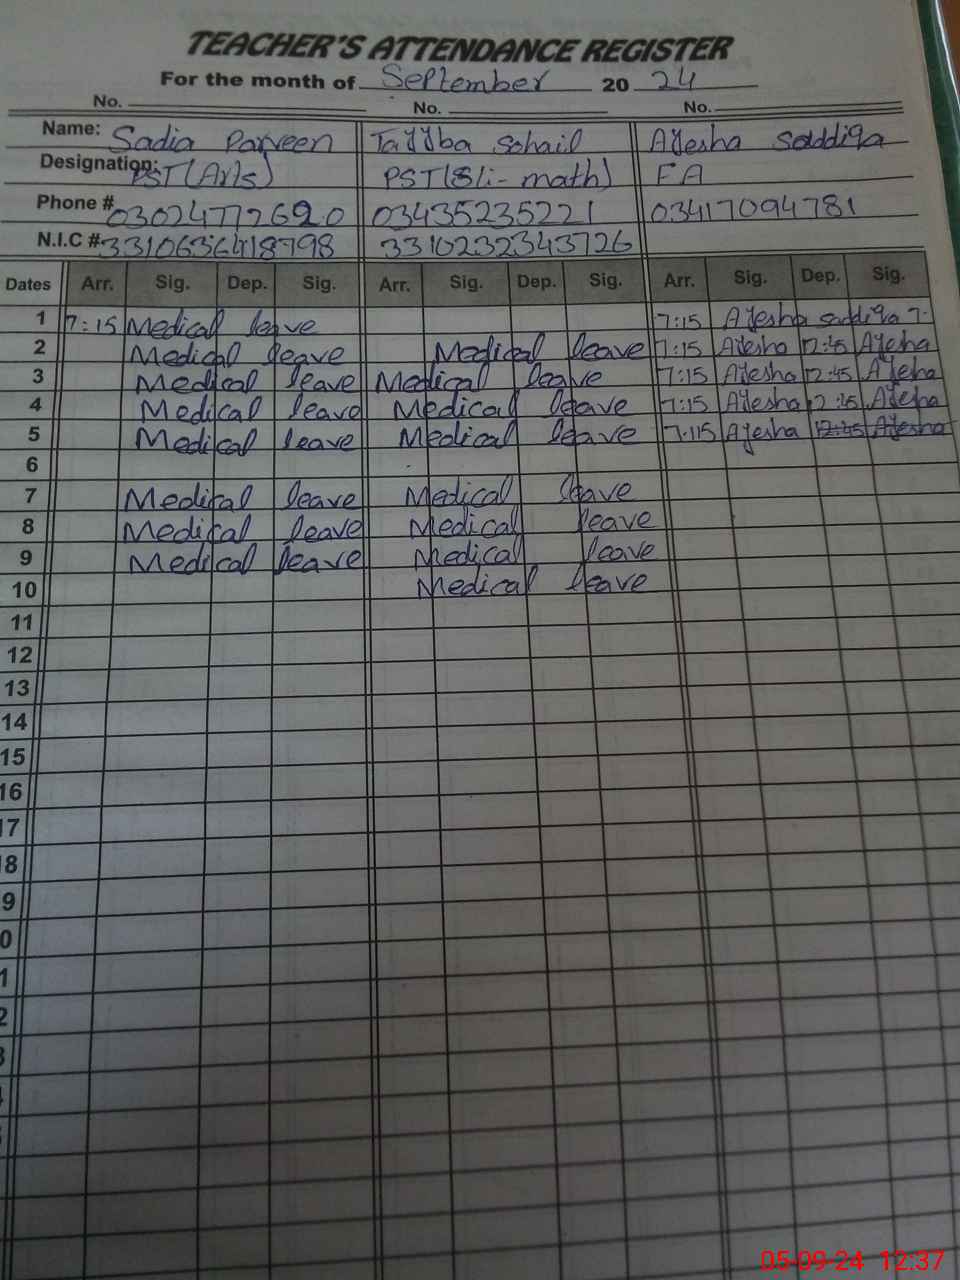 TEACHER'S ATTENDANCE REGISTER
For the month of September 20 24
No. No. No.
Name: Sadia Parveen Tayyba Sohail Ayesha Saddiqa
Designation: PST(Arts) PST(S/:- math) FA
Phone # 03024772620 03435235221 03417094781
N.I.C # 3310636418798 3310232343726
Dates Arr. Sig. Dep. Sig. Arr. Sig. Dep. Sig. Arr. Sig. Dep. Sig.
1 7:15 Medical leave 7:15 Ayesha Saddiqa 7.
2 Medical leave Medical leave 7:15 Ayesha 12:45 Ayesha
3 Medical leave Medical leave 7:15 Ayesha 12:45 Ayesha
4 Medical leave Medical leave 7:15 Ayesha 12:45 Ayesha
5 Medical leave Medical leave 7:115 Ayesha 12:45 Ayesha
6
7 Medical leave Medical leave
8 Medical leave Medical leave
9 Medical leave Medical leave
10 Medical leave
11
12
13
14
15
16
17
8
9
0
1
2
3
05-09-24 12:37